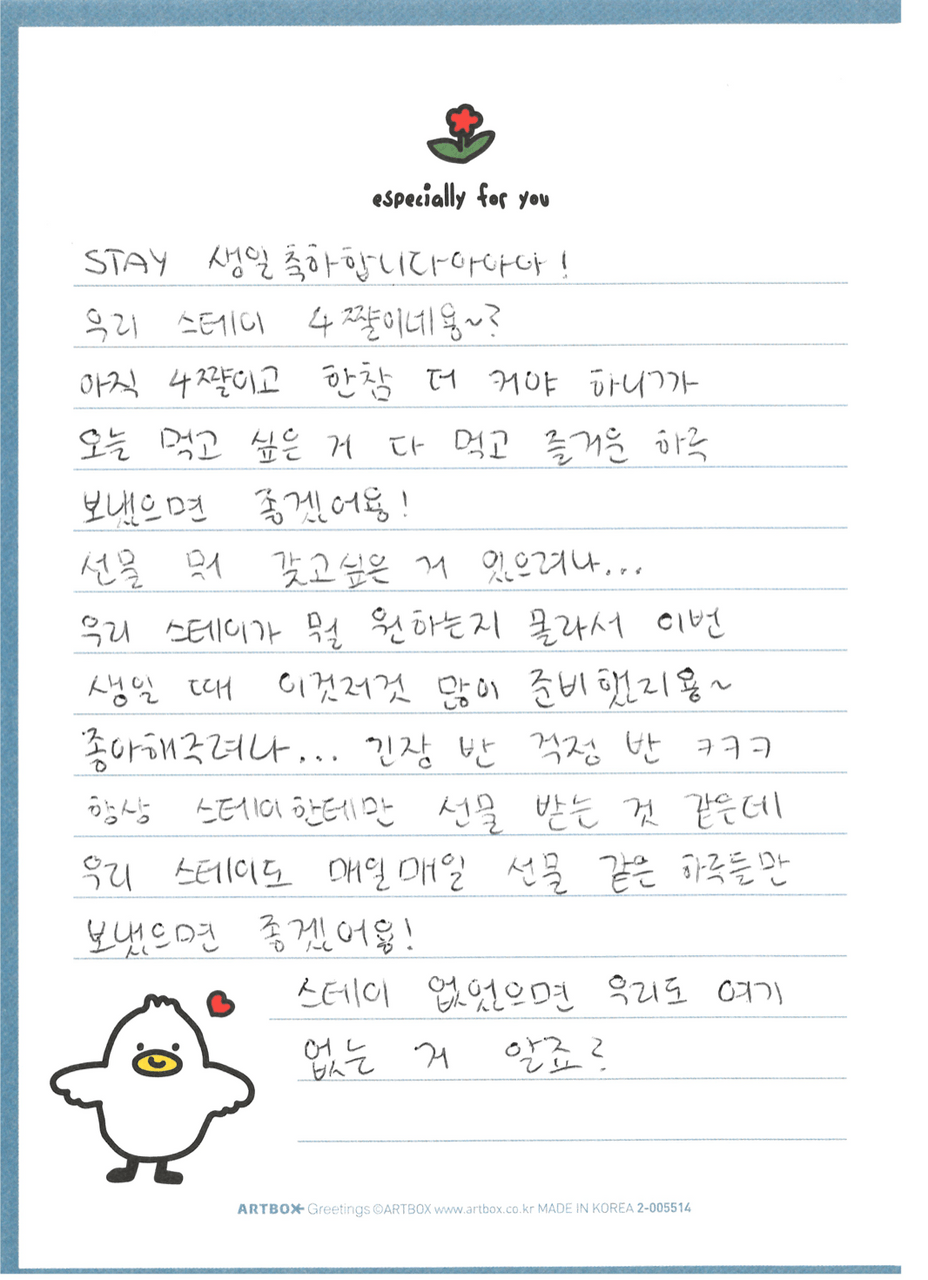 especially for you
STAY 생일축하합니다아아아!
우리 스테이 4짤이네용~?
아직 4짤이고 한참 더 커야 하니까
오늘 먹고 싶은 거 다 먹고 즐거운 하루
보냈으면 좋겠어용!
선물 뭐 갖고싶은 거 있으려나...
우리 스테이가 뭘 원하는지 몰라서 이번
생일 때 이것저것 많이 준비했지용~
좋아해주려나... 긴장 반 걱정 반 ㅋㅋㅋ
항상 스테이한테만 선물 받는 것 같은데
우리 스테이도 매일매일 선물 같은 하루들만
보냈으면 좋겠어용!
스테이 없었으면 우리도 여기
없는 거 알죠?
ARTBOX Greetings ©ARTBOX www.artbox.co.kr MADE IN KOREA 2-005514